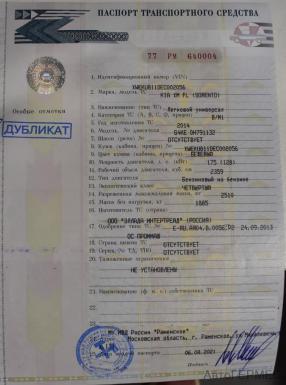 ПАСПОРТ ТРАНСПОРТНОГО СРЕДСТВА
77 РМ 640004
Особые отметки
ДУБЛИКАТ
1. Идентификационный номер (VIN) XWEKU811DEC002056
2. Марка, модель ТС KIA XM FL (SORENTO)
3. Наименование (тип ТС) Легковой универсал
4. Категория ТС (А, В, С, D, прицеп) B/M1
5. Год изготовления ТС 2014
6. Модель, № двигателя G4KE DH751132
7. Шасси (рама) № ОТСУТСТВУЕТ
8. Кузов (кабина, прицеп) № XWEKU811DEC002056
9. Цвет кузова (кабины, прицепа) БЕЖЕВЫЙ
10. Мощность двигателя, л. с. (кВт) 175 (128)
11. Рабочий объем двигателя, куб. см 2359
12. Тип двигателя Бензиновый на бензине
13. Экологический класс ЧЕТВЕРТЫЙ
14. Разрешенная максимальная масса, кг 2510
15. Масса без нагрузки, кг 1885
16. Изготовитель ТС (страна)
ООО "ЭЛЛАДА ИНТЕРТРЕЙД" (РОССИЯ)
17. Одобрение типа ТС № 24.09.2013
ОС ПРОММАШ
18. Страна вывоза ТС ОТСУТСТВУЕТ
19. Серия, № ТД, ТПО ОТСУТСТВУЕТ
20. Таможенные ограничения
НЕ УСТАНОВЛЕНЫ
21. Наименование (ф. и. о.) собственника ТС
МУ МВД России "Раменское"
Московская область, г. Раменское,
паспорта 06.08.2021
Подпись